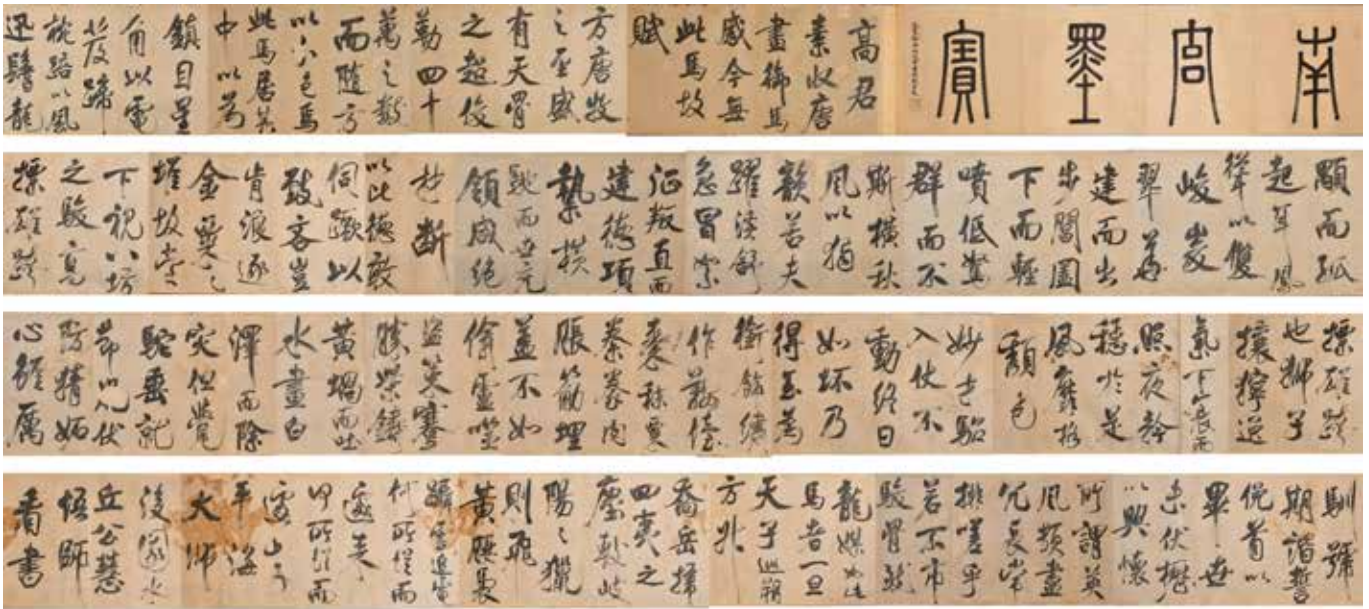 南宮墨寶
高君
素收唐
畫御馬
感今無
此馬故
賦
方唐牧
之至盛
有天骨
之超俊
勒四十
萬之數
而隨方
以分色焉
此馬居其
中以為
鎮目星
角以電
發蹄
椀踣以風
迅鬐龍
顒而孤
起耳鳳
聳以雙
峻
翠華
建而出
步閶闔
下而輕
噴低駑
群而不
嘶橫秋
風以獨
韻若夫
躍溪舒
急冒絮
征叛直而
建德項
縶橫
馳而世充
領咸絕
材斷
以比德敢
伺蹶以
致吝豈
肯浪逐
金粟之
堆故當
下視八坊
之駿高
摽雄跨
摽雄跨
也獅子
攘獰逸
氣下衰而
照夜矜
穩於是
風靡格
頹色
妙才駘
入仗不
動終日
如坏乃
得玉為
銜飾繡
作鞍
棗秣粟
豢肉
脹筋埋
蓋不如
偷靈嘬
盜策蹇
勝柴鑄
黃蝸而吐
水畫白
澤而除
灾但覺
駝垂就
節鼠伏
防猜妬
心雖厲
馴號
期諧誓
俛首以
畢世
未伏櫪
以興懷
所謂英
風頓盡
冗長常
排嗟乎
若不市
駿骨致
龍媒如此
馬者一旦
天子巡朔
方升
喬岳掃
四夷之
塵較岐
陽之獵
則飛
黃腰裊
躡雲追電
何所從而
遽來
平海
大師
後園水
丘公慧
悟師
看書